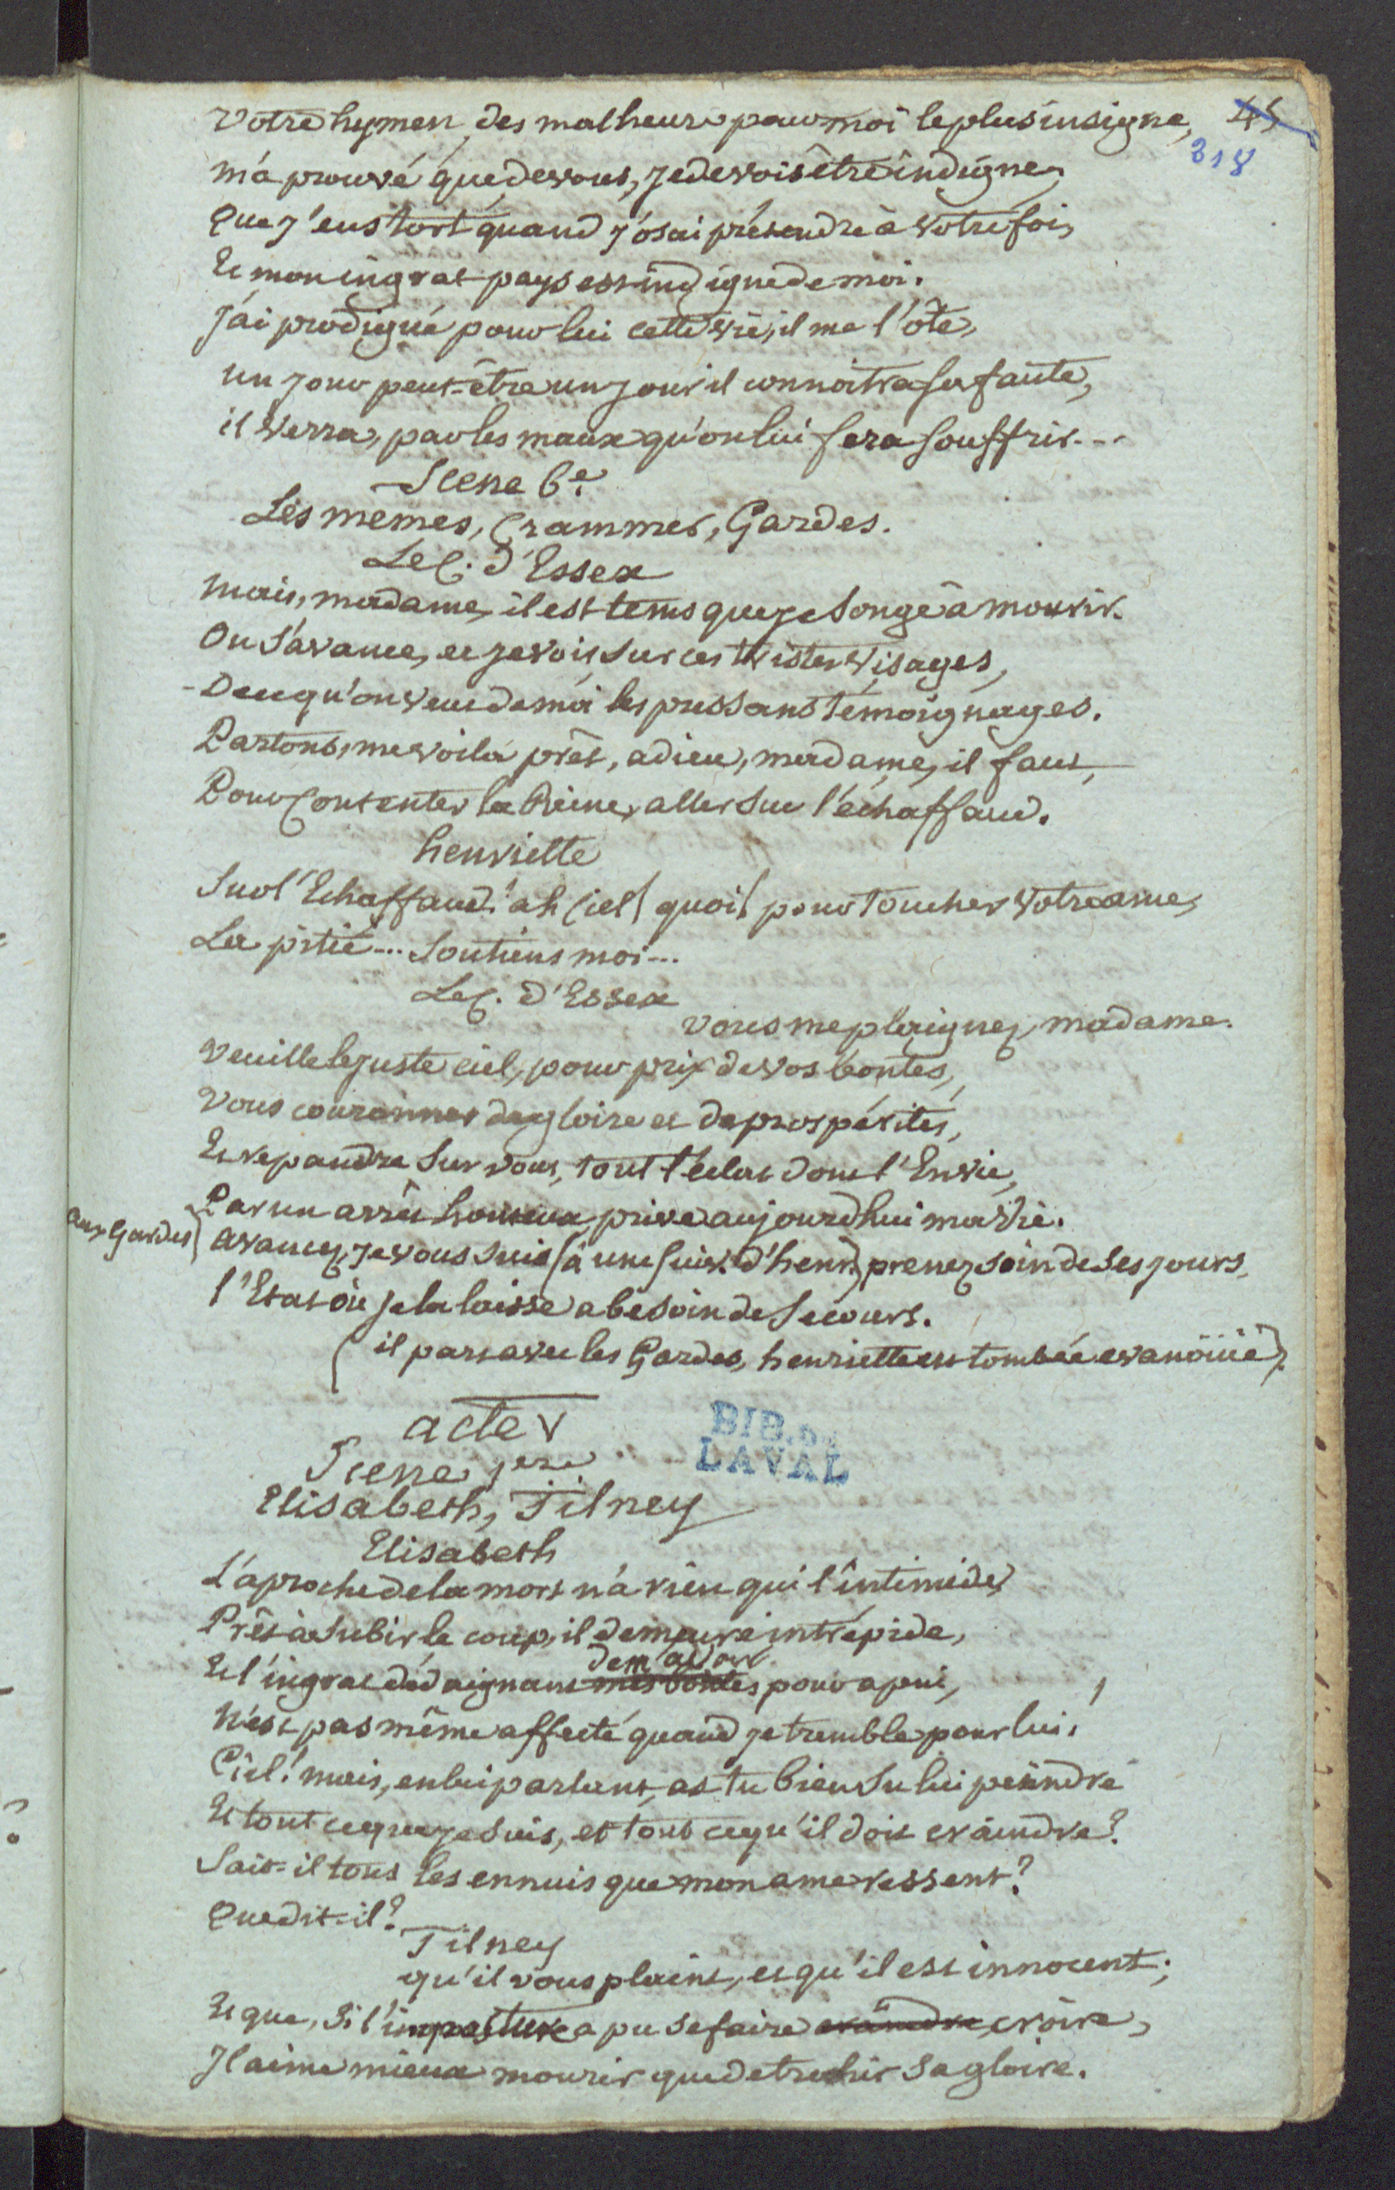 Votre hymen, des malheurs pour moi le plus insigne,
45
318
m'a prouvé que de vous, je devois être indigne;
Que j'eus tort quand j'osai prétendre à votre foi,
Et mon ingrat pays est indigne de moi.
J'ai prodigué pour lui cette vie, il me l'ôte,
un jour peut-être un jour il connoitra sa faute,
il verra, par les maux qu'on lui fera souffrir...
Scene 6e.
Les memes, Crammer, Gardes.
Le C. d'Essex
mais, madame, il est tems que je songe à mourir.
On s'avance, et je vois sur ces tristes visages,
De ce qu'on veut de moi les pressans témoignages.
Partons, me voilà prêt, adieu, madame, il faut,
Pour contenter la Reine, aller sur l'échaffaud.
henriette
Sur l'Echaffaud! ah Ciel! quoi! pour toucher votre ame,
La pitié... Soutiens moi...
Le C. d'Essex
vous me plaignez, madame.
Veuille le juste ciel, pour prix de vos bontés,
Vous couronner de gloire et de prospérités,
Et repandre sur vous, tout l'éclat dont l'Envie,
Par un arrêt honteux, prive aujourd'hui ma vie.
aux Gardes) avancez, je vous suis (à une suiv. d'henr.) prenez soin de ses jours,
l'Etat où je la laisse a besoin de secours.
(il part avec les Gardes, henriette est tombée evanoüie).
acte V
Scene 1ere
Elisabeth, Tilney
BIB. DE
LAVAL
Elisabeth
L'aproche de la mort n'a rien qui l'intimide,
Prêt à subir le coup, il demeure intrépide,
de m'avoir
Et l'ingrat dédaignant mes bontés pour apui,
N'est pas même affecté quand je tremble pour lui!
Ciel! mais, en lui parlant, as tu bien su lui peindre
Et tout ce que je suis, et tout ce qu'il doit craindre?
Sait-il tous les ennuis que mon ame ressent?
Que dit-il?
Tilney
qu'il vous plaint, et qu'il est innocent;
Et que, si l'imposture a pu se faire craindre croire,
Il aime mieux mourir que de trahir sa gloire.